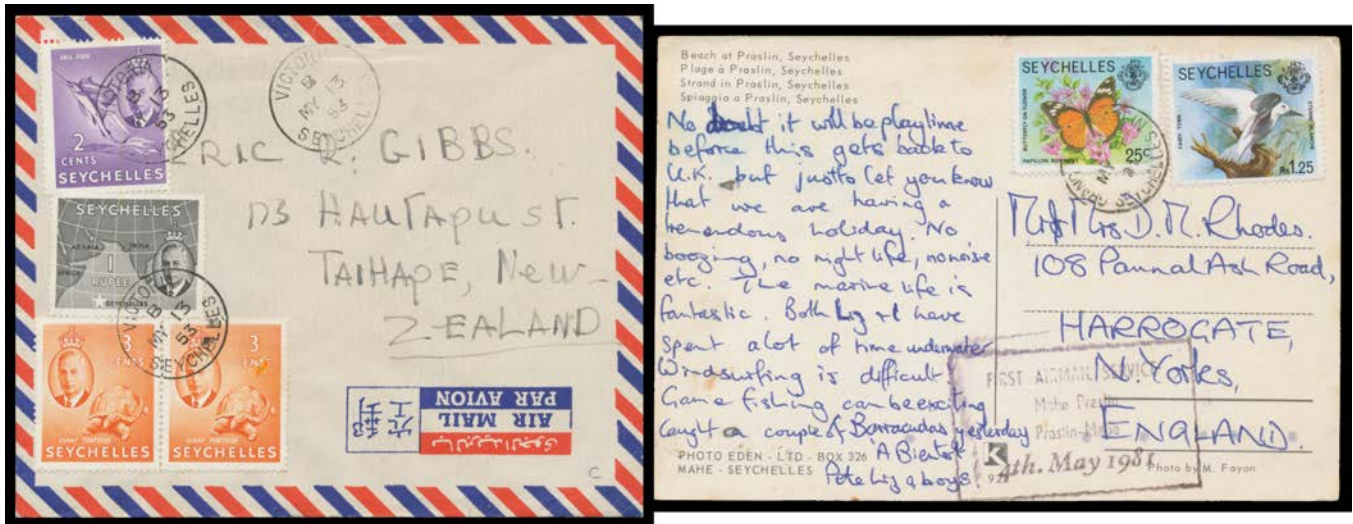 SAIL FISH
2
CENTS
SEYCHELLES
VICTORIA
B
MY 13
53
SEYCHELLES
VICTORIA
B
MY 13
53
SEYCHELLES
ERIC R. GIBBS.
173 HAUTAPU ST.
TAIHAPE, NEW-
ZEALAND
SEYCHELLES
ARABIA
INDIA
AFRICA
1
RUPEE
SEYCHELLES
VICTORIA
B
MY 13
53
SEYCHELLES
3
CENTS
GIANT TORTOISE
SEYCHELLES
3
CENTS
GIANT TORTOISE
SEYCHELLES
AIR MAIL
PAR AVION
C
Beach at Praslin, Seychelles
Plage à Praslin, Seychelles
Strand in Praslin, Seychelles
Spiaggia a Praslin, Seychelles
No doubt it will be playtime
before this gets back to
U.K. but just to let you know
that we are having a
tremendous holiday. No
boozing, no night life, no noise
etc. The marine life is
fantastic. Both Liz + I have
spent a lot of time underwater
Windsurfing is difficult.
Game fishing can be exciting
Caught a couple of Borracudas yesterday
A Bientot
Pete Liz & boys.
PHOTO EDEN - LTD - BOX 326
MAHE - SEYCHELLES
K
Photo by M. Fayon
SEYCHELLES
BUTTERFLY ON FLOWER
PAPILLON
25c
SEYCHELLES
FAIRY TERN
Rs1.25
SEYCHELLES
Mr & Mrs D. M. Rhodes.
108 Pannal Ash Road,
HARROGATE,
N. Yorks,
ENGLAND.
FIRST AIRMAIL SERVICE
Mahe Praslin
Praslin-Mahe
4th. May 1981